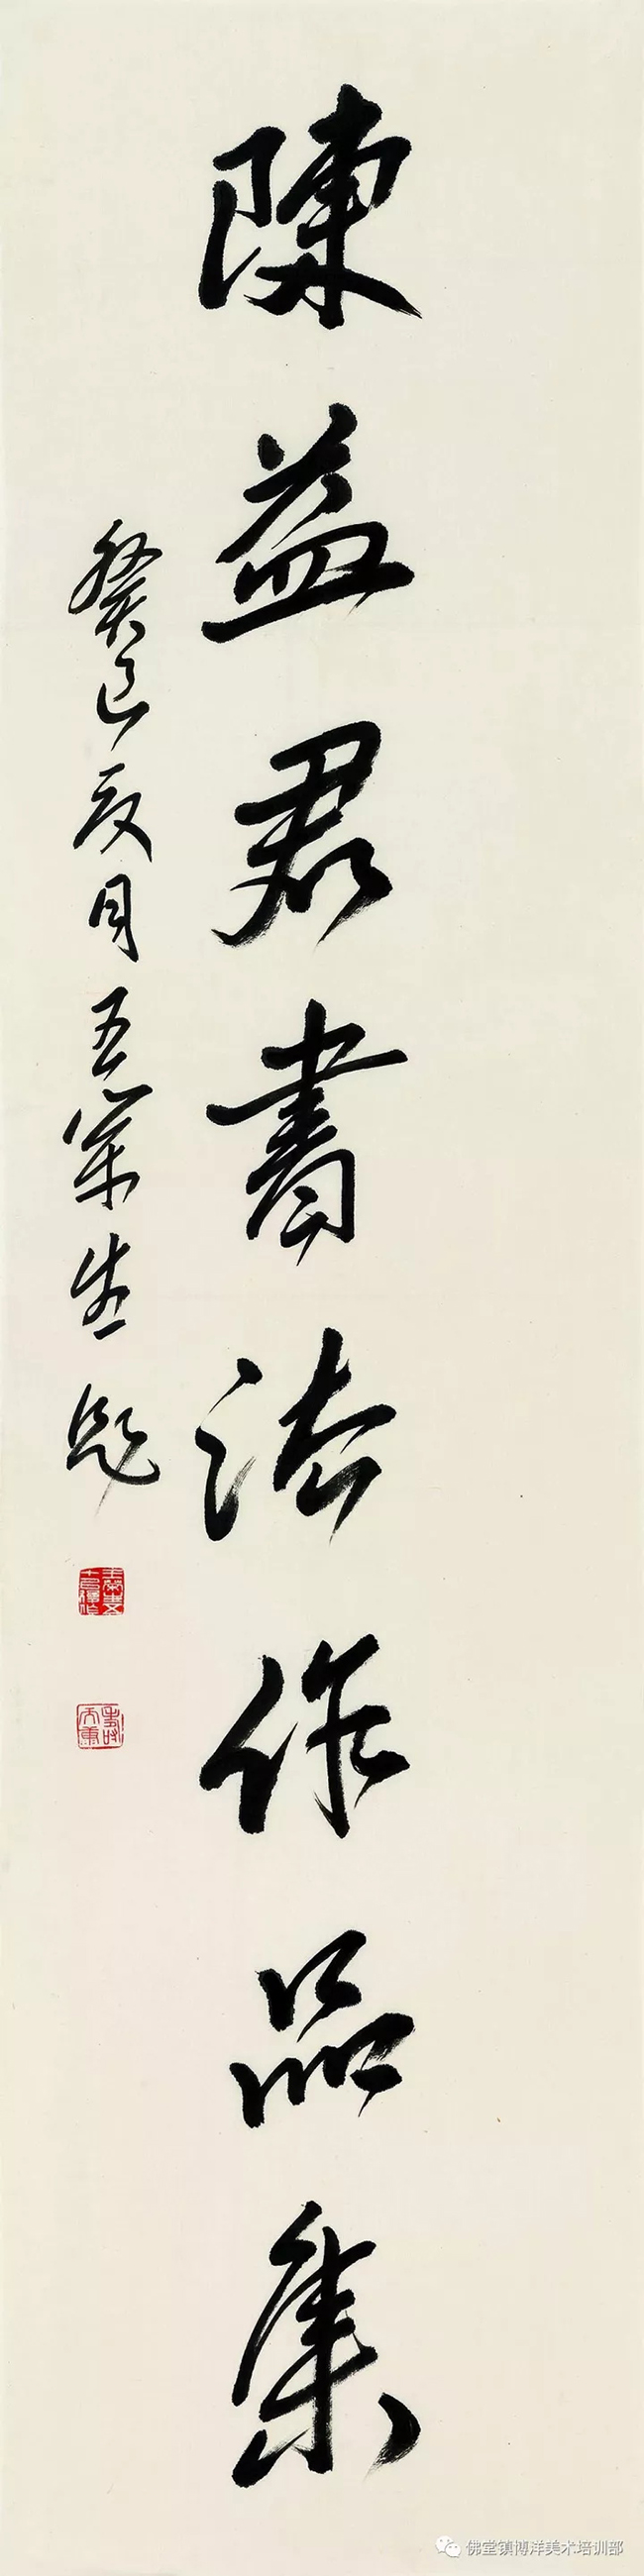 陳益君書法作品集
癸巳夏月王榮生題
佛堂镇博洋美术培训部